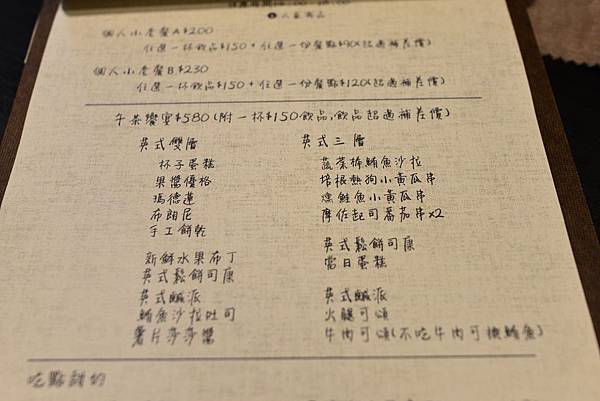 人氣商品
個人小套餐A $200
任選一杯飲品$150 + 任選一份餐點$90(超過補差價)
個人小套餐B $230
任選一杯飲品$150 + 任選一份餐點$120(超過補差價)
午茶饗宴$580 (附一杯$150飲品,飲品超過補差價)
英式雙層
杯子蛋糕
果醬優格
瑪德蓮
布朗尼
手工餅乾
新鮮水果布丁
英式鬆餅司康
英式鹹派
鮪魚沙拉吐司
薯片莎莎醬
英式三層
蔬菜棒鮪魚沙拉
培根熱狗小黃瓜串
燻鮭魚小黃瓜串
摩佐起司番茄串x2
英式鬆餅司康
當日蛋糕
英式鹹派
火腿可頌
牛肉可頌(不吃牛肉可換鮪魚)
吃點甜的